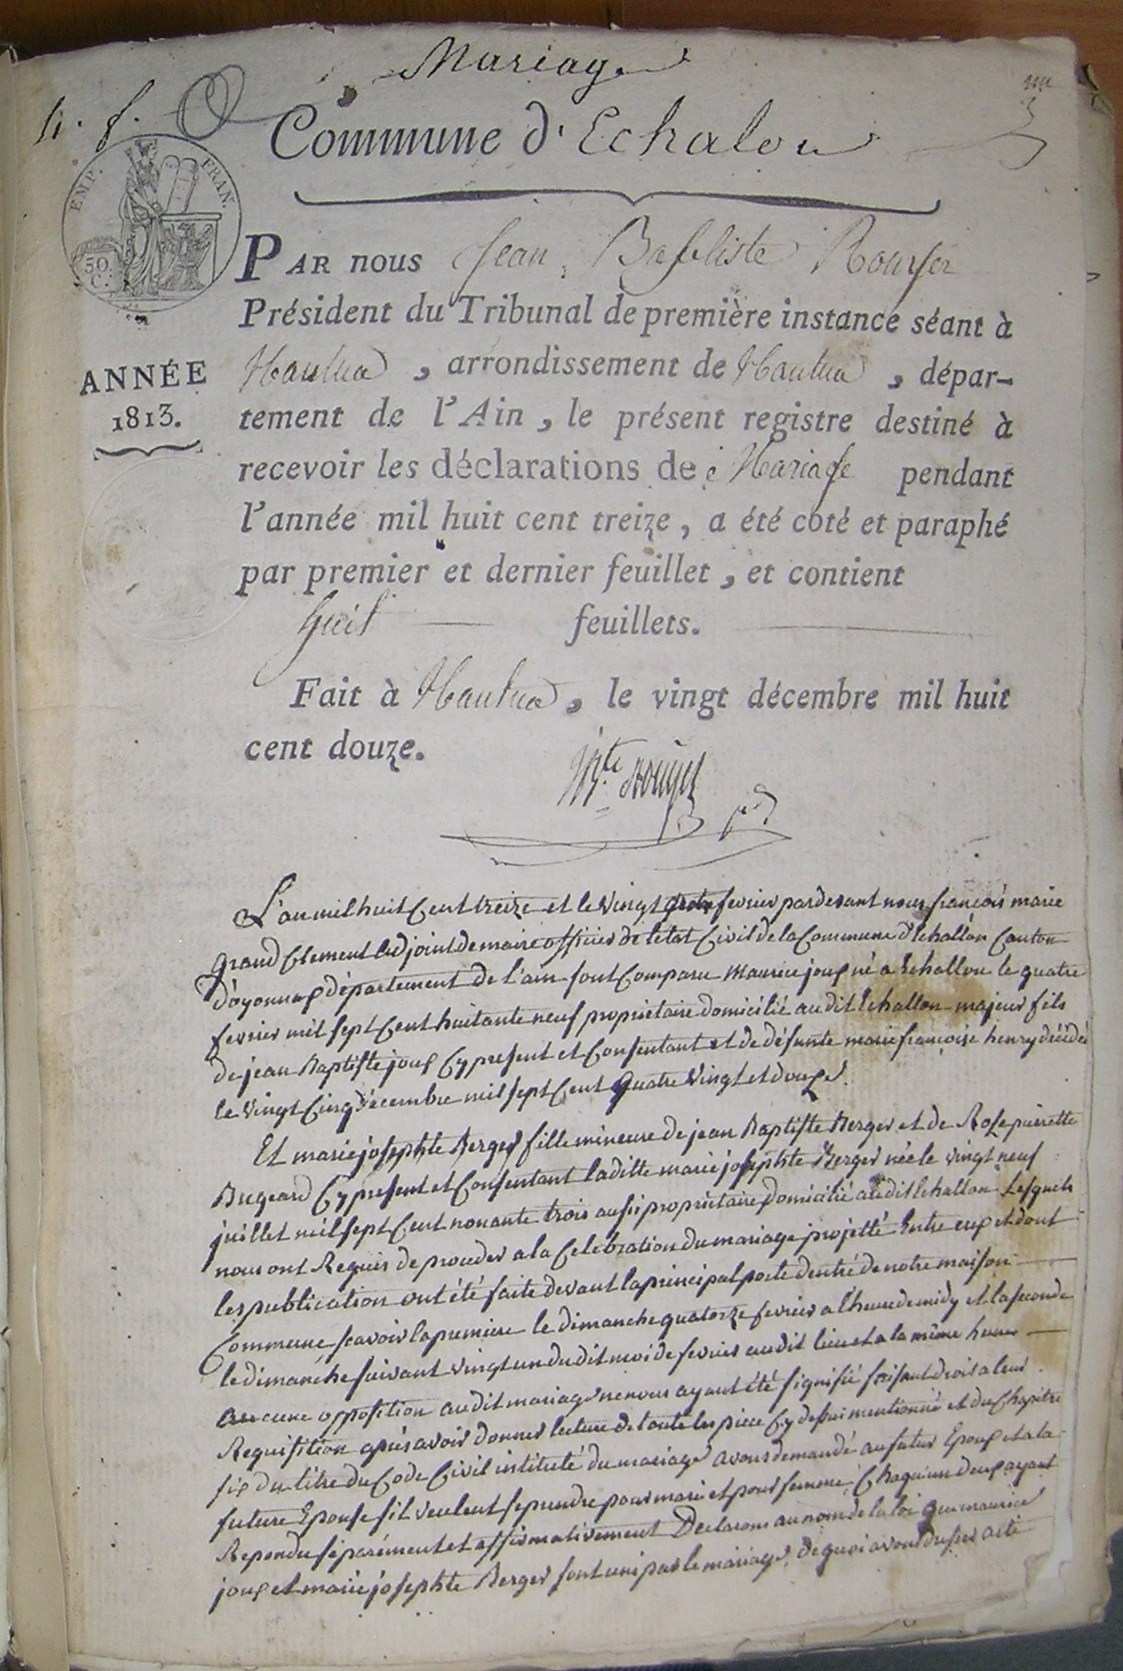 Mariage
Commune d'Echalon
EMP. FRAN.
50 C.
PAR nous Jean Baptiste Rouyer
Président du Tribunal de première instance séant à
Nantua, arrondissement de Nantua, dépar-
tement de l'Ain, le présent registre destiné à
recevoir les déclarations de Mariage pendant
l'année mil huit cent treize, a été coté et paraphé
par premier et dernier feuillet, et contient
huit feuillets.
Fait à Nantua, le vingt décembre mil huit
cent douze.
ANNÉE
1813.
L'an mil huit Cent treize et le vingt fevrier pardevant nous françois marie
grand Clement adjoint de maire officier de letat Civil de la Commune d'Echallon Canton
d'oyonnax département de l'ain sont Comparu Maurice joux né a Echallon le quatre
fevrier mil sept Cent huitante neuf propriétaire domicilié audit Echallon majeur fils
de jean Baptiste joux Cy present et Consentant et de défunte marie françoise henry décédée
le vingt Cinq décembre mil sept Cent quatre vingt et douze.
Et marie josephte Berger fille mineure de jean Baptiste Berger et de Rose pierrette
Bugeard Cy present et Consentant ladite marie josephte Berger née le vingt neuf
juillet mil sept Cent nonante trois aussi propriétaire domicilié audit Echallon Lesquels
nous ont Requis de proceder a la Celebration du mariage projetté Entre eux et dont
les publication ont été faite devant la principal porte dentré de notre maison
Commune scavoir la premiere le dimanche quatorze fevrier a l'heure de midy et la seconde
le dimanche suivant vingt un dudit moi de fevrier audit lieu et a la même heure
aucune opposition audit mariage ne nous ayant été signifié faisant droit a leur
Requisition après avoir donner lecture de toute les piece Cy dessus mentionné et du Chapitre
six du titre du Code Civil intitulé du mariage avons demandé au futur Epoux et a la
future Epouse sil veulent se prendre pour mari et pour femme, Chaqu'un deux ayant
Repondu séparément et affirmativement Declarons au nom de la loi que maurice
joux et marie josephte Berger sont uni par le mariage, de quoi avons dressé acte